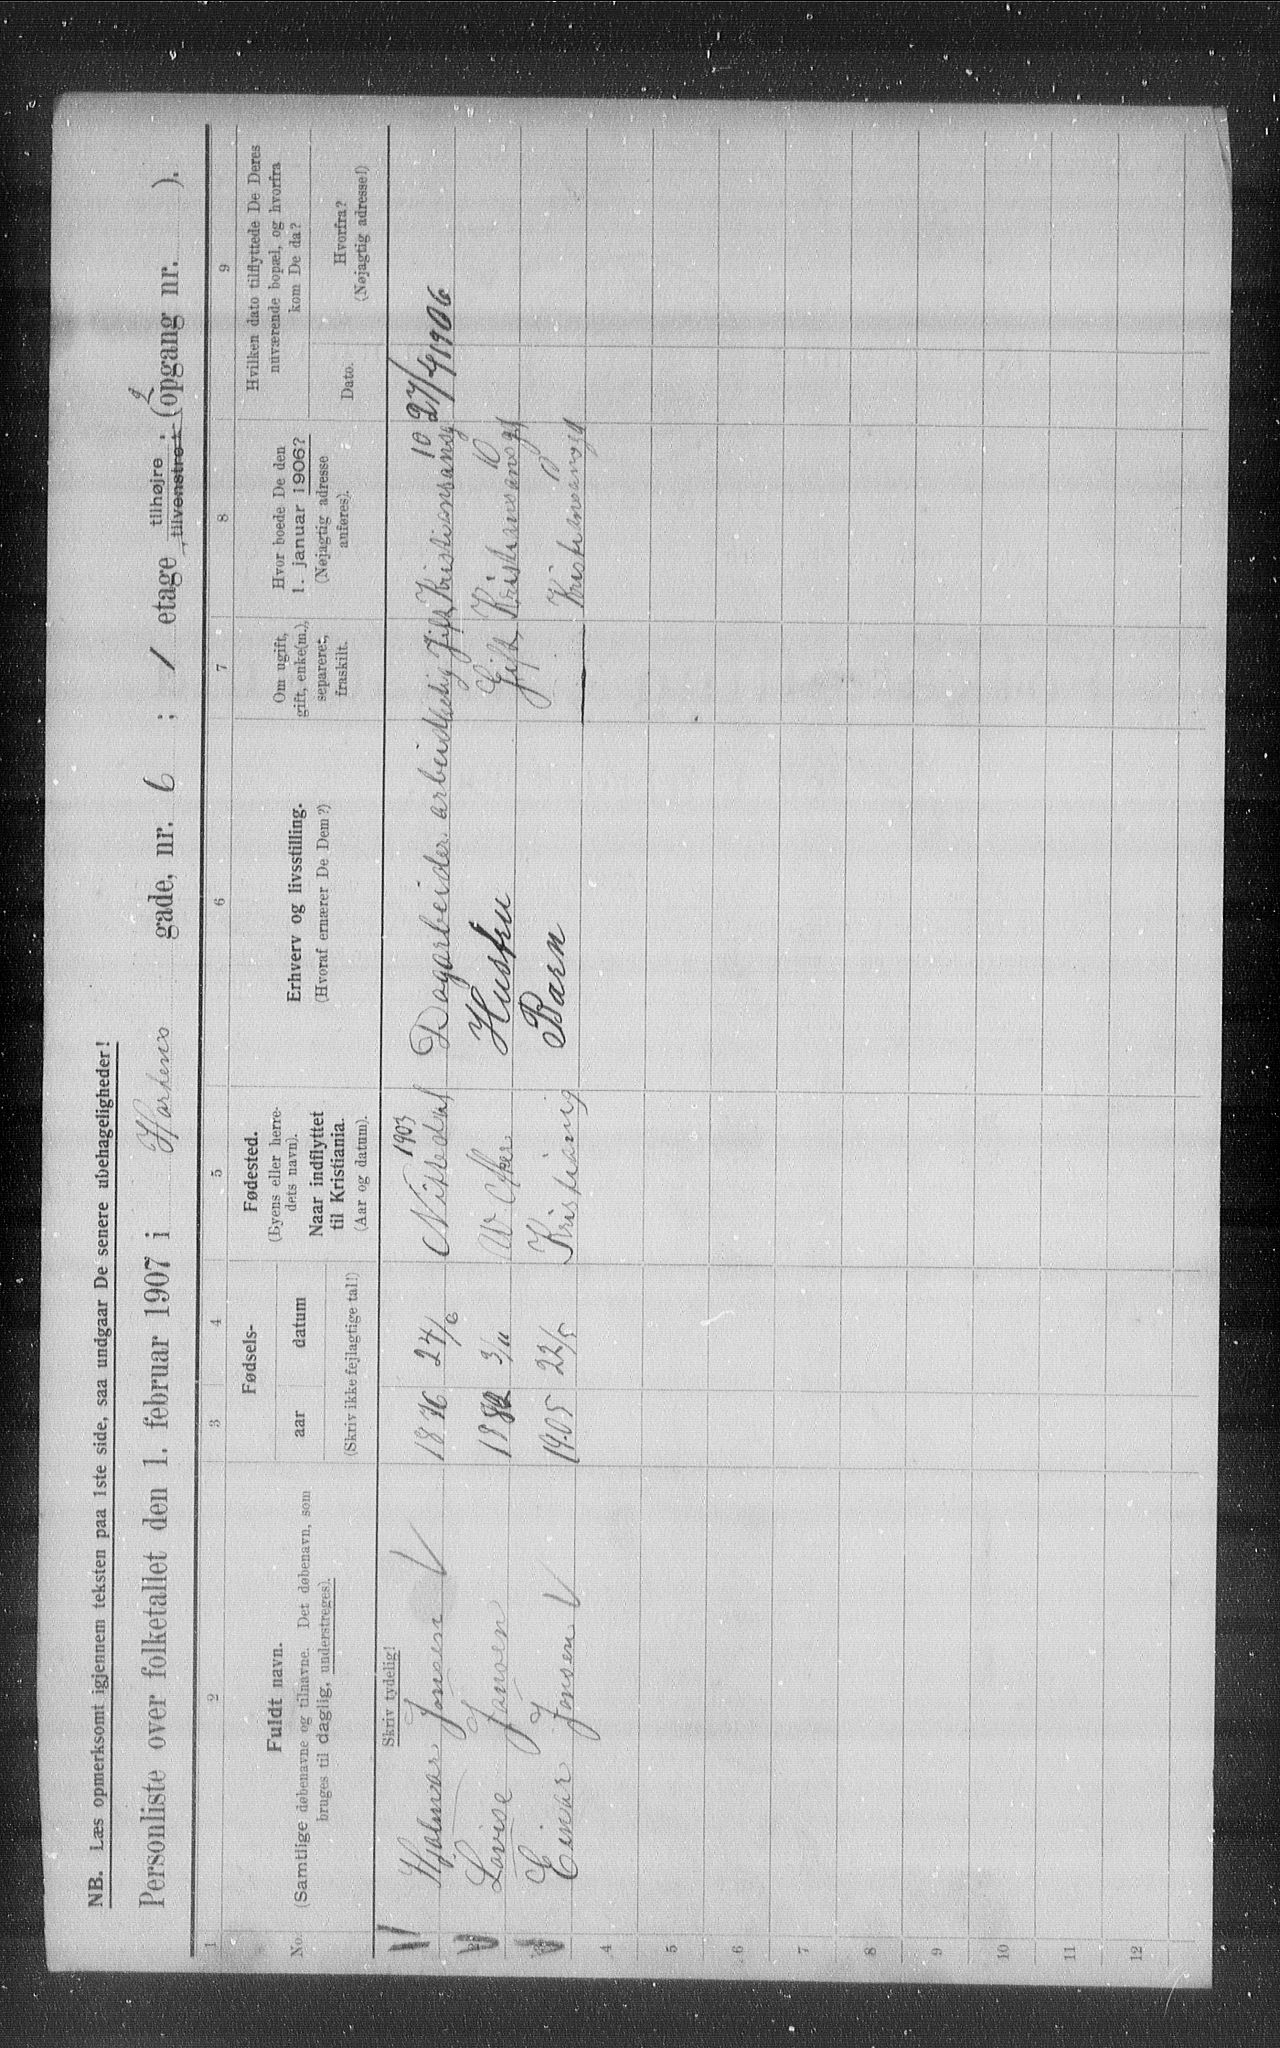 NB. Læs opmerksomt igjennem teksten paa 1ste side, saa undgaar De senere ubehageligheder!
Personliste over folketallet den 1. februar 1907 i gade, nr. 6 ; 1 etage tilhøjre tilvenstre ; (opgang nr. 2 ).
1 2 3 4 5 6 7 8 9
No.
Fuldt navn.
(Samtlige døbenavne og tilnavne. Det døbenavn, som
bruges til daglig, understreges).
Fødsels-
aar datum
(Skriv ikke fejlagtige tal!)
Fødested.
(Byens eller herre-
dets navn).
Naar indflyttet
til Kristiania.
(Aar og datum).
Erhverv og livsstilling.
(Hvoraf ernærer De Dem?)
Om ugift,
gift, enke(m.),
separeret,
fraskilt.
Hvor boede De den
1. januar 1906?
(Nøjagtig adresse
anføres).
Hvilken dato tilflyttede De Deres
nuværende bopæl, og hvorfra
kom De da?
Dato.
Hvorfra?
(Nøjagtig adresse!)
Skriv tydelig!
1903 10
Hjalmar Jonsen 1876 24/6 Nittedal Dagarbeider arbeidledig Gift Kristiansansg 27/4 1906
Lovise Jansen 1882 3/11 Hustru Gift Kristiansansgt
Einar Jonsen 1905 22/5 Kristiania Barn — Kristiansansgd
4
5
6
7
8
9
10
11
12